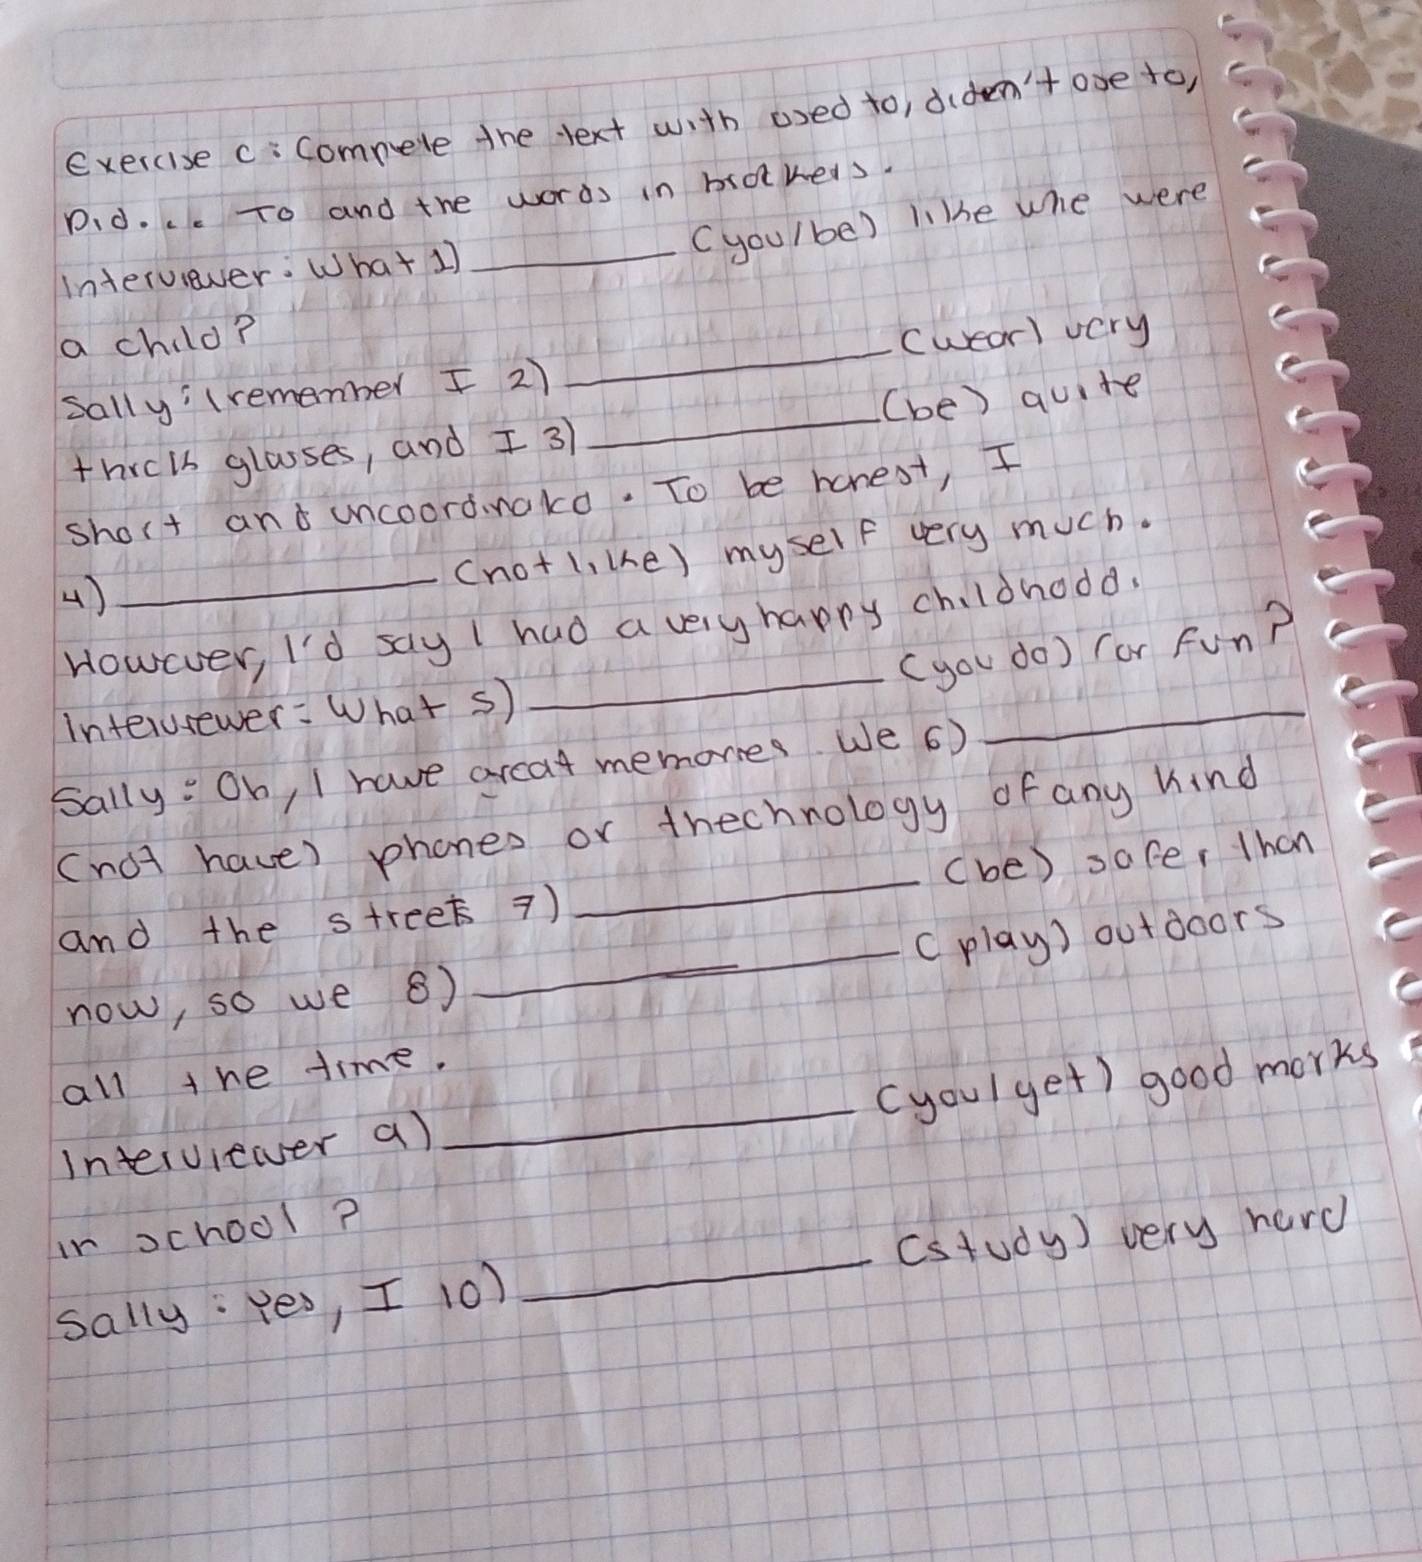 Exercise c: Complete the text with used to, diden't use to,
Did... To and the words in brackets.
Interviewer: What 1) ________ (you/be) like whe were
a child?
Sally: I remember I 2) ________ (wear) very
thick glasses, and I 3) ________ (be) quite
short and uncoordinated. To be honest, I
4) ________ (not like) myself very much.
However, I'd say I had a very happy childhodd.
Interviewer: What 5) ________ (you do) for fun?
Sally: Oh, I have great memories. We 6) ________
(not have) phones or thechnology of any kind
and the streets 7) ________ (be) safer than
now, so we 8) ________ (play) outdoors
all the time.
Interviewer 9) ________ (you/get) good marks
in school?
Sally: Yes, I 10) ________ (study) very hard